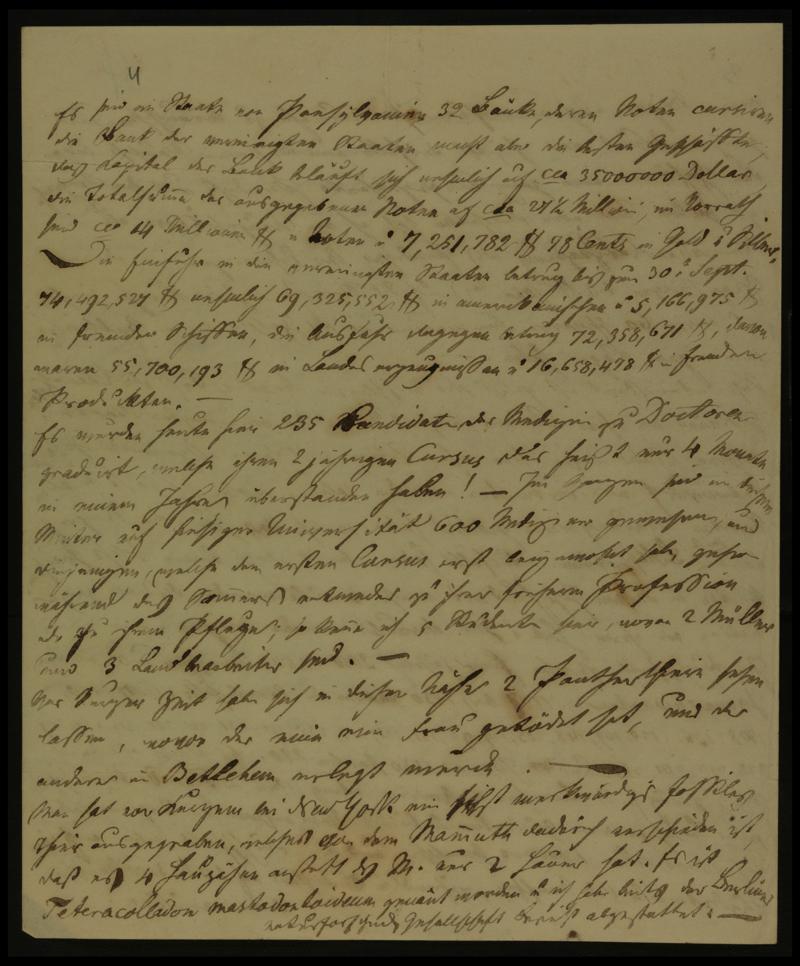 4
Es sind im Staate von Pensylvanien 32 Bänke, deren Noten cursiren
die Bank der vereinigten Staaten macht aber die besten Geschäffte,
das Kapital der Bank beläuft sich nehmlich auf cca 35000000 Dollar
die Totalsumme der ausgegebenen Noten auf cca 27½ Million, im Vorrath
sind cca 14 Millionen in Noten u 7,251,782 78 Cents in Gold u Silber.
Die Einfuhr in die vereinigten Staaten betrug bis zum 30 Sept.
74,492,527 nehmlich 69,325,552 in amerikanischen u 5,166,975
in fremden Schiffen, die Ausfuhr dagegen betrug 72,358,671, davon
waren 55,700,193 in Landes erzeugnissen u 16,658,478 in fremden
Produkten. —
Es wurden heute hier 235 Kandidaten der Medizin zu Doctoren
graduirt, welche ihren 2 jährigen Cursus das heist nur 4 Monate
in einem Jahre überstanden haben! — Im Ganzen sind in diesem
Winter auf hiesiger Universität 600 Mediziner gewesen, und
diejenigen, welche den ersten Cursus erst beigewohnt haben, gehen
während des Sommers entweder zu ihrer früheren Profession
oder zu ihrem Pfluge; so kenne ich 5 Studenten hier, wovon 2 Müller
und 3 Landarbeiter sind. —
Vor kurzer Zeit haben sich in dieser Nähe 2 Pantherthiere sehen
lassen, wovon der eine eine Frau getödtet hat, und der
andere in Bethlehem erlegt wurde. —
Man hat vor Kurzem bei New York ein höchst merkwürdiges fossiles
Thier ausgegraben, welches von dem Mamuth dadurch verschieden ist,
daß es 4 Hauzähne anstatt des M. nur 2 Hauer hat. Es ist
Teteracolladon mastodontoideum genant worden u ich habe bereits der Berliner
naturforschende Gesellschaft Bericht abgestattet. —